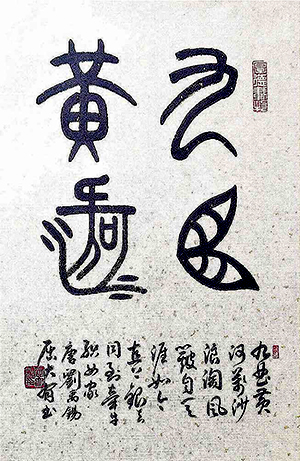 九曲
黃河
九曲黃
河萬沙
浪淘風
簸自天
涯如今
直上銀
同到牽牛
織女家
唐劉禹錫
書